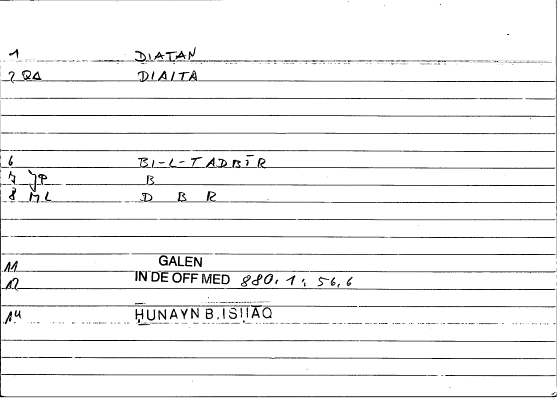 1 DIATAN
2 QA DIAITA
6 BI-L-TADBĪR
7 JP B
8 ML D B R
11 GALEN
12 IN DE OFF MED 880,1; 56,6
14 ḤUNAYN B. ISḤĀQ